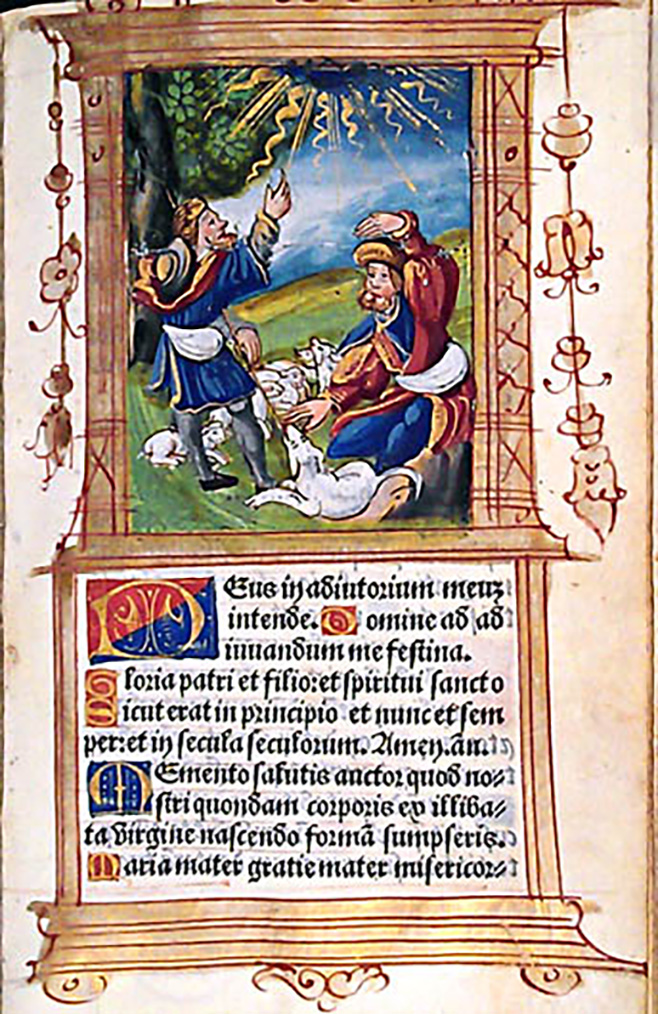 Deus in adiutorium meuz
intende. Domine ad ad
iuuandum me festina.
Gloria patri et filio: et spiritui sancto
Sicut erat in principio et nunc et sem
per: et in secula seculorum. Amen. añ.
Memento salutis auctor quod no⸗
stri quondam corporis ex illiba⸗
ta virgine nascendo formã sumpseris.
Maria mater gratie mater misericor⸗